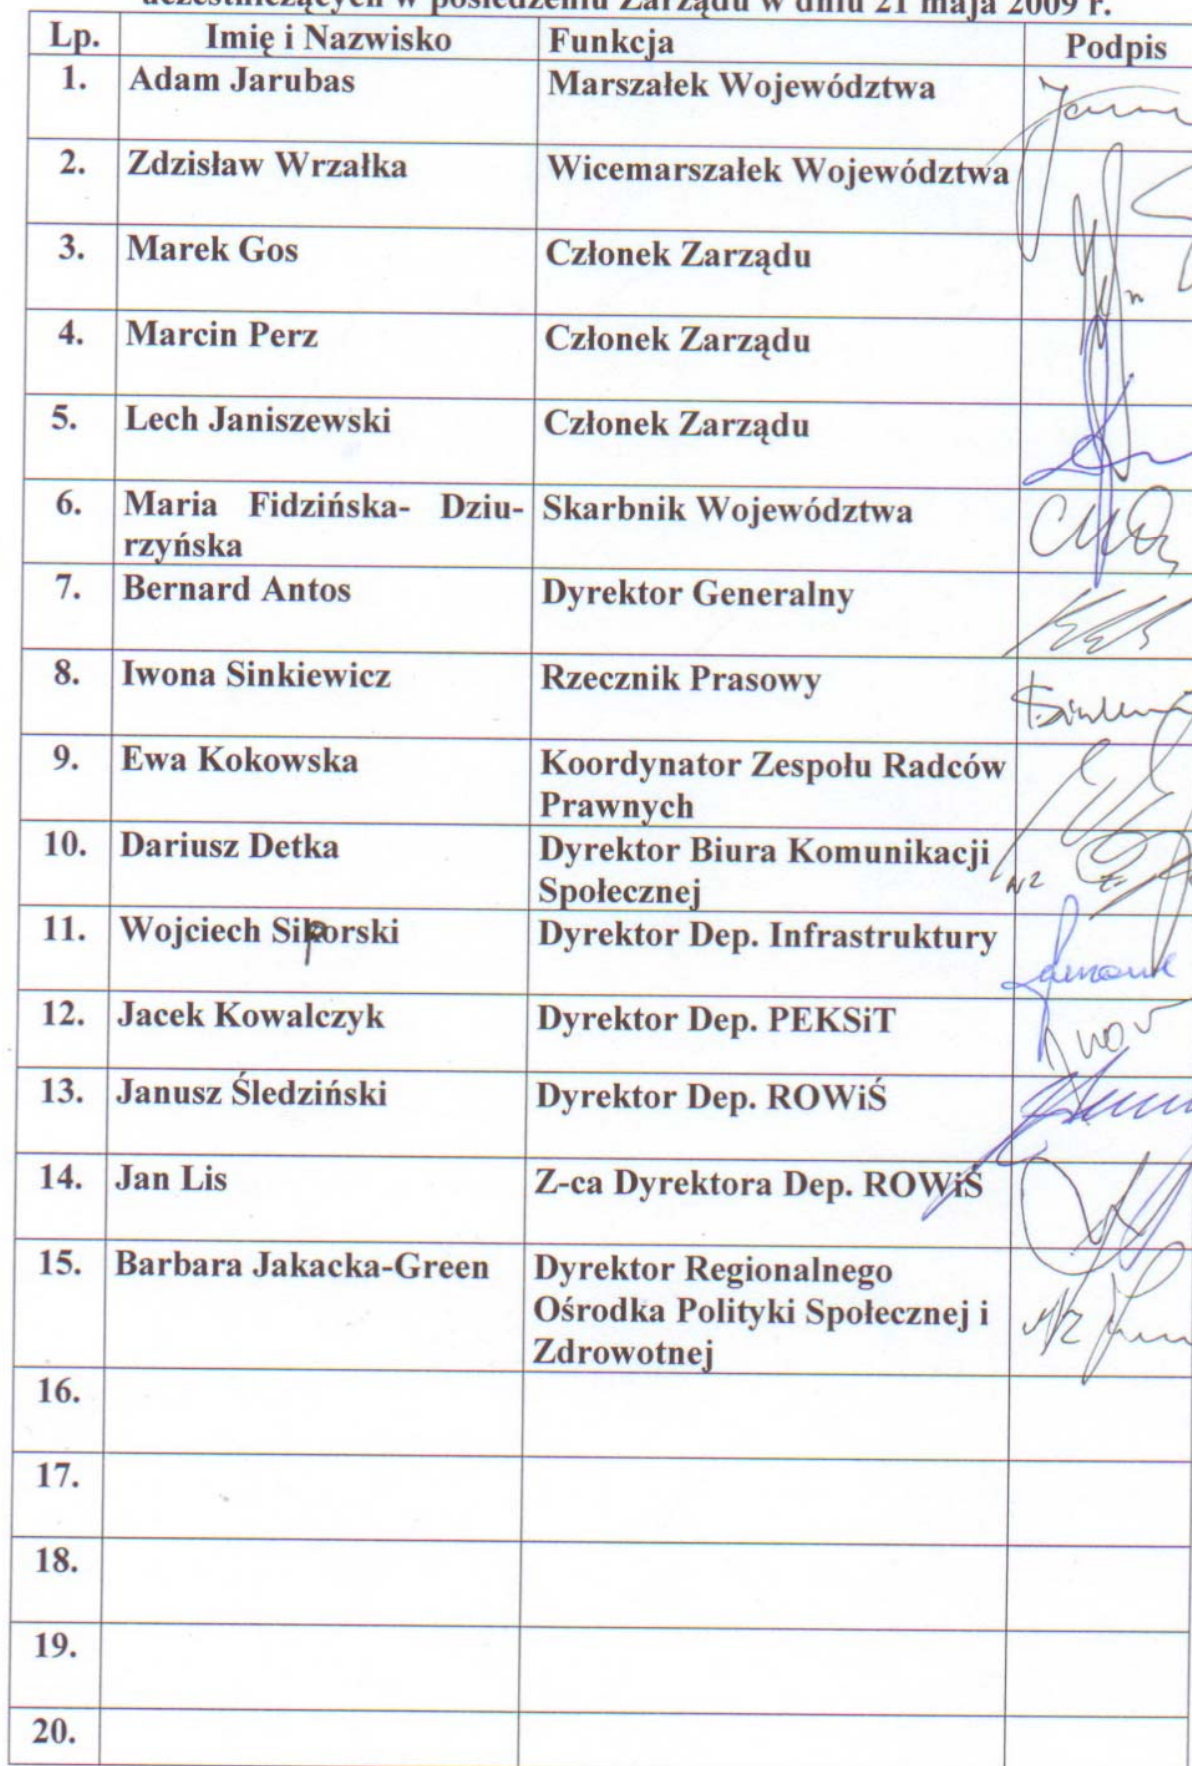 uczestniczących w posiedzeniu Zarządu w dniu 21 maja 2009 r.
Lp. Imię i Nazwisko Funkcja Podpis
1. Adam Jarubas Marszałek Województwa
2. Zdzisław Wrzałka Wicemarszałek Województwa
3. Marek Gos Członek Zarządu
4. Marcin Perz Członek Zarządu
5. Lech Janiszewski Członek Zarządu
6. Maria Fidzińska- Dziu- Skarbnik Województwa
rzyńska
7. Bernard Antos Dyrektor Generalny
8. Iwona Sinkiewicz Rzecznik Prasowy
9. Ewa Kokowska Koordynator Zespołu Radców
Prawnych
10. Dariusz Detka Dyrektor Biura Komunikacji
Społecznej
11. Wojciech Siporski Dyrektor Dep. Infrastruktury
12. Jacek Kowalczyk Dyrektor Dep. PEKSiT
13. Janusz Śledziński Dyrektor Dep. ROWiŚ
14. Jan Lis Z-ca Dyrektora Dep. ROWiŚ
15. Barbara Jakacka-Green Dyrektor Regionalnego
Ośrodka Polityki Społecznej i
Zdrowotnej
16.
17.
18.
19.
20.